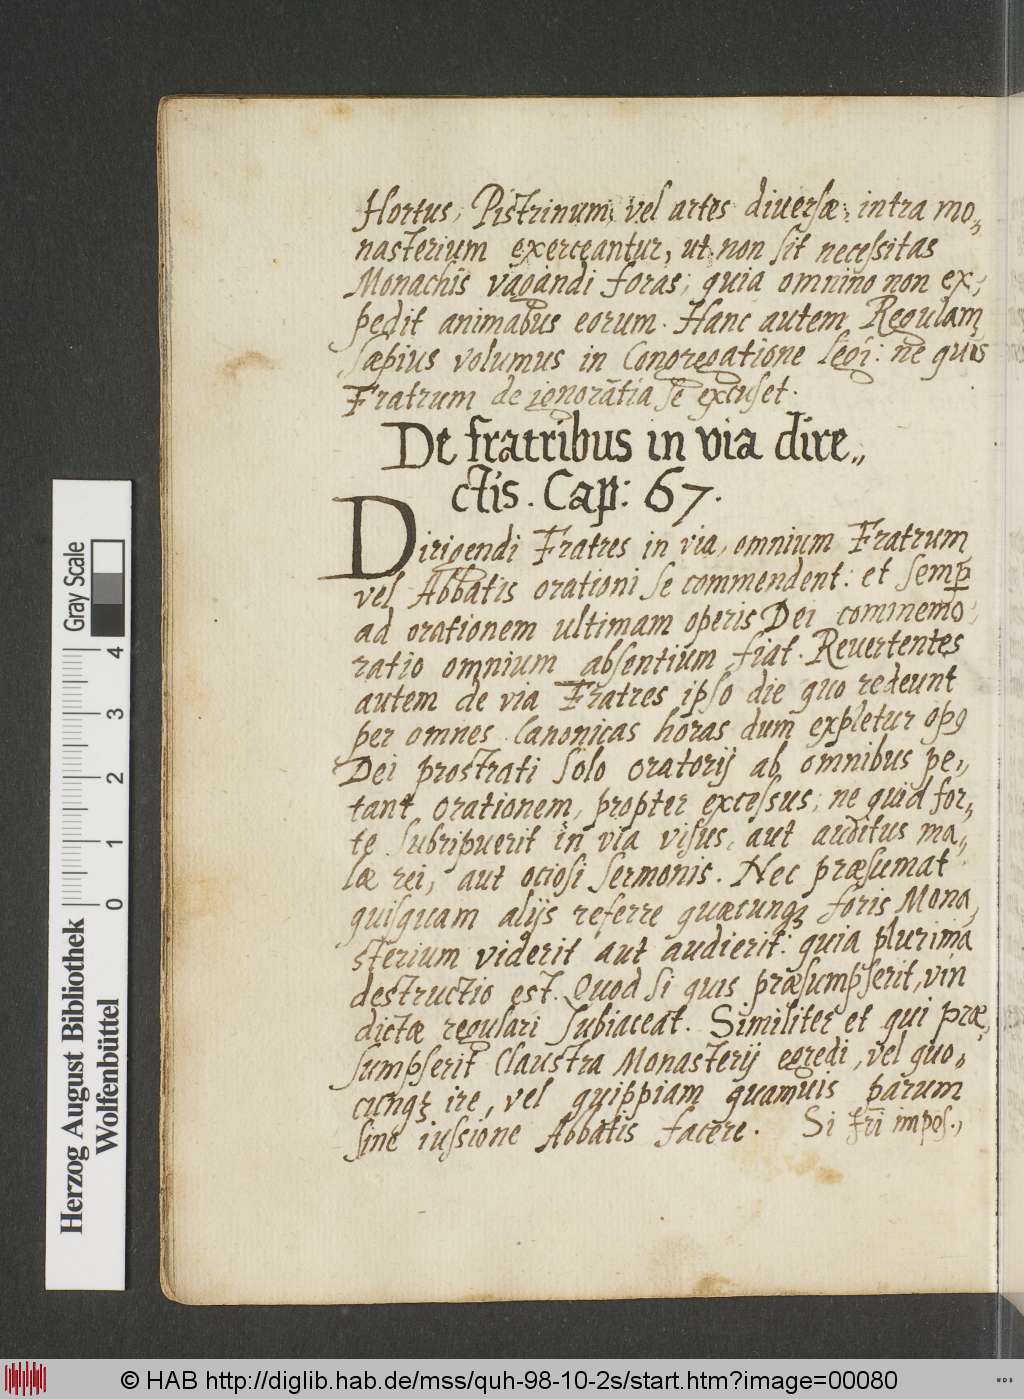 Hortus, Pistrinum, vel artes diuersæ, intra mo„
nasterium exerceantur, ut non sit necessitas
Monachis vagandi foras; quia omnino non ex„
pedit animabus eorum. Hanc autem Regulam
sæpius volumus in Congregatione legi: ne quis
Fratrum de ignorãtia se excuset.
De fratribus in via dire„
ctis. Cap: 67.
Dirigendi Fratres in via, omnium Fratrum
vel Abbatis orationi se commendent: et semp̱
ad orationem ultimam operis Dei commemo„
ratio omnium absentium fiat. Reuertentes
autem de via Fratres ipso die quo redeunt
per omnes Canonicas horas dum expletur opꝰ
Dei prostrati solo oratorij ab omnibus pe„
tant orationem, propter excessus; ne quid for„
te subripuerit in via visus, aut auditus ma„
læ rei, aut ociosi sermonis. Nec præsumat
quisquam alijs referre quæcunqꝫ foris Mona„
sterium viderit aut audierit: quia plurima
destructio est. Quod si quis præsumpserit, vin
dictæ regulari subiaceat. Similiter et qui præ„
sumpserit Claustra Monasterij egredi, vel quo„
cunqꝫ ire, vel quippiam quamuis parum
sine iussione Abbatis facere. Si fr̃i impos„
Gray Scale
4
3
2
1
0
Herzog August Bibliothek
Wolfenbüttel
© HAB http://diglib.hab.de/mss/quh-98-10-2s/start.htm?image=00080